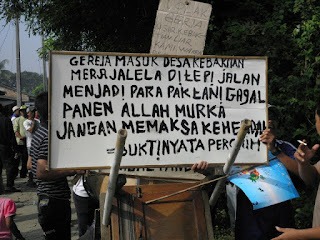 GEREJA
GEREJA MASUK DESA KEBAKTIAN
MERAJALELA DITEPI JALAN
MENJADI PARA PAK TANI GAGAL
PANEN ALLAH MURKA
JANGAN MEMAKSA KEHE
BUKTINYATA PER